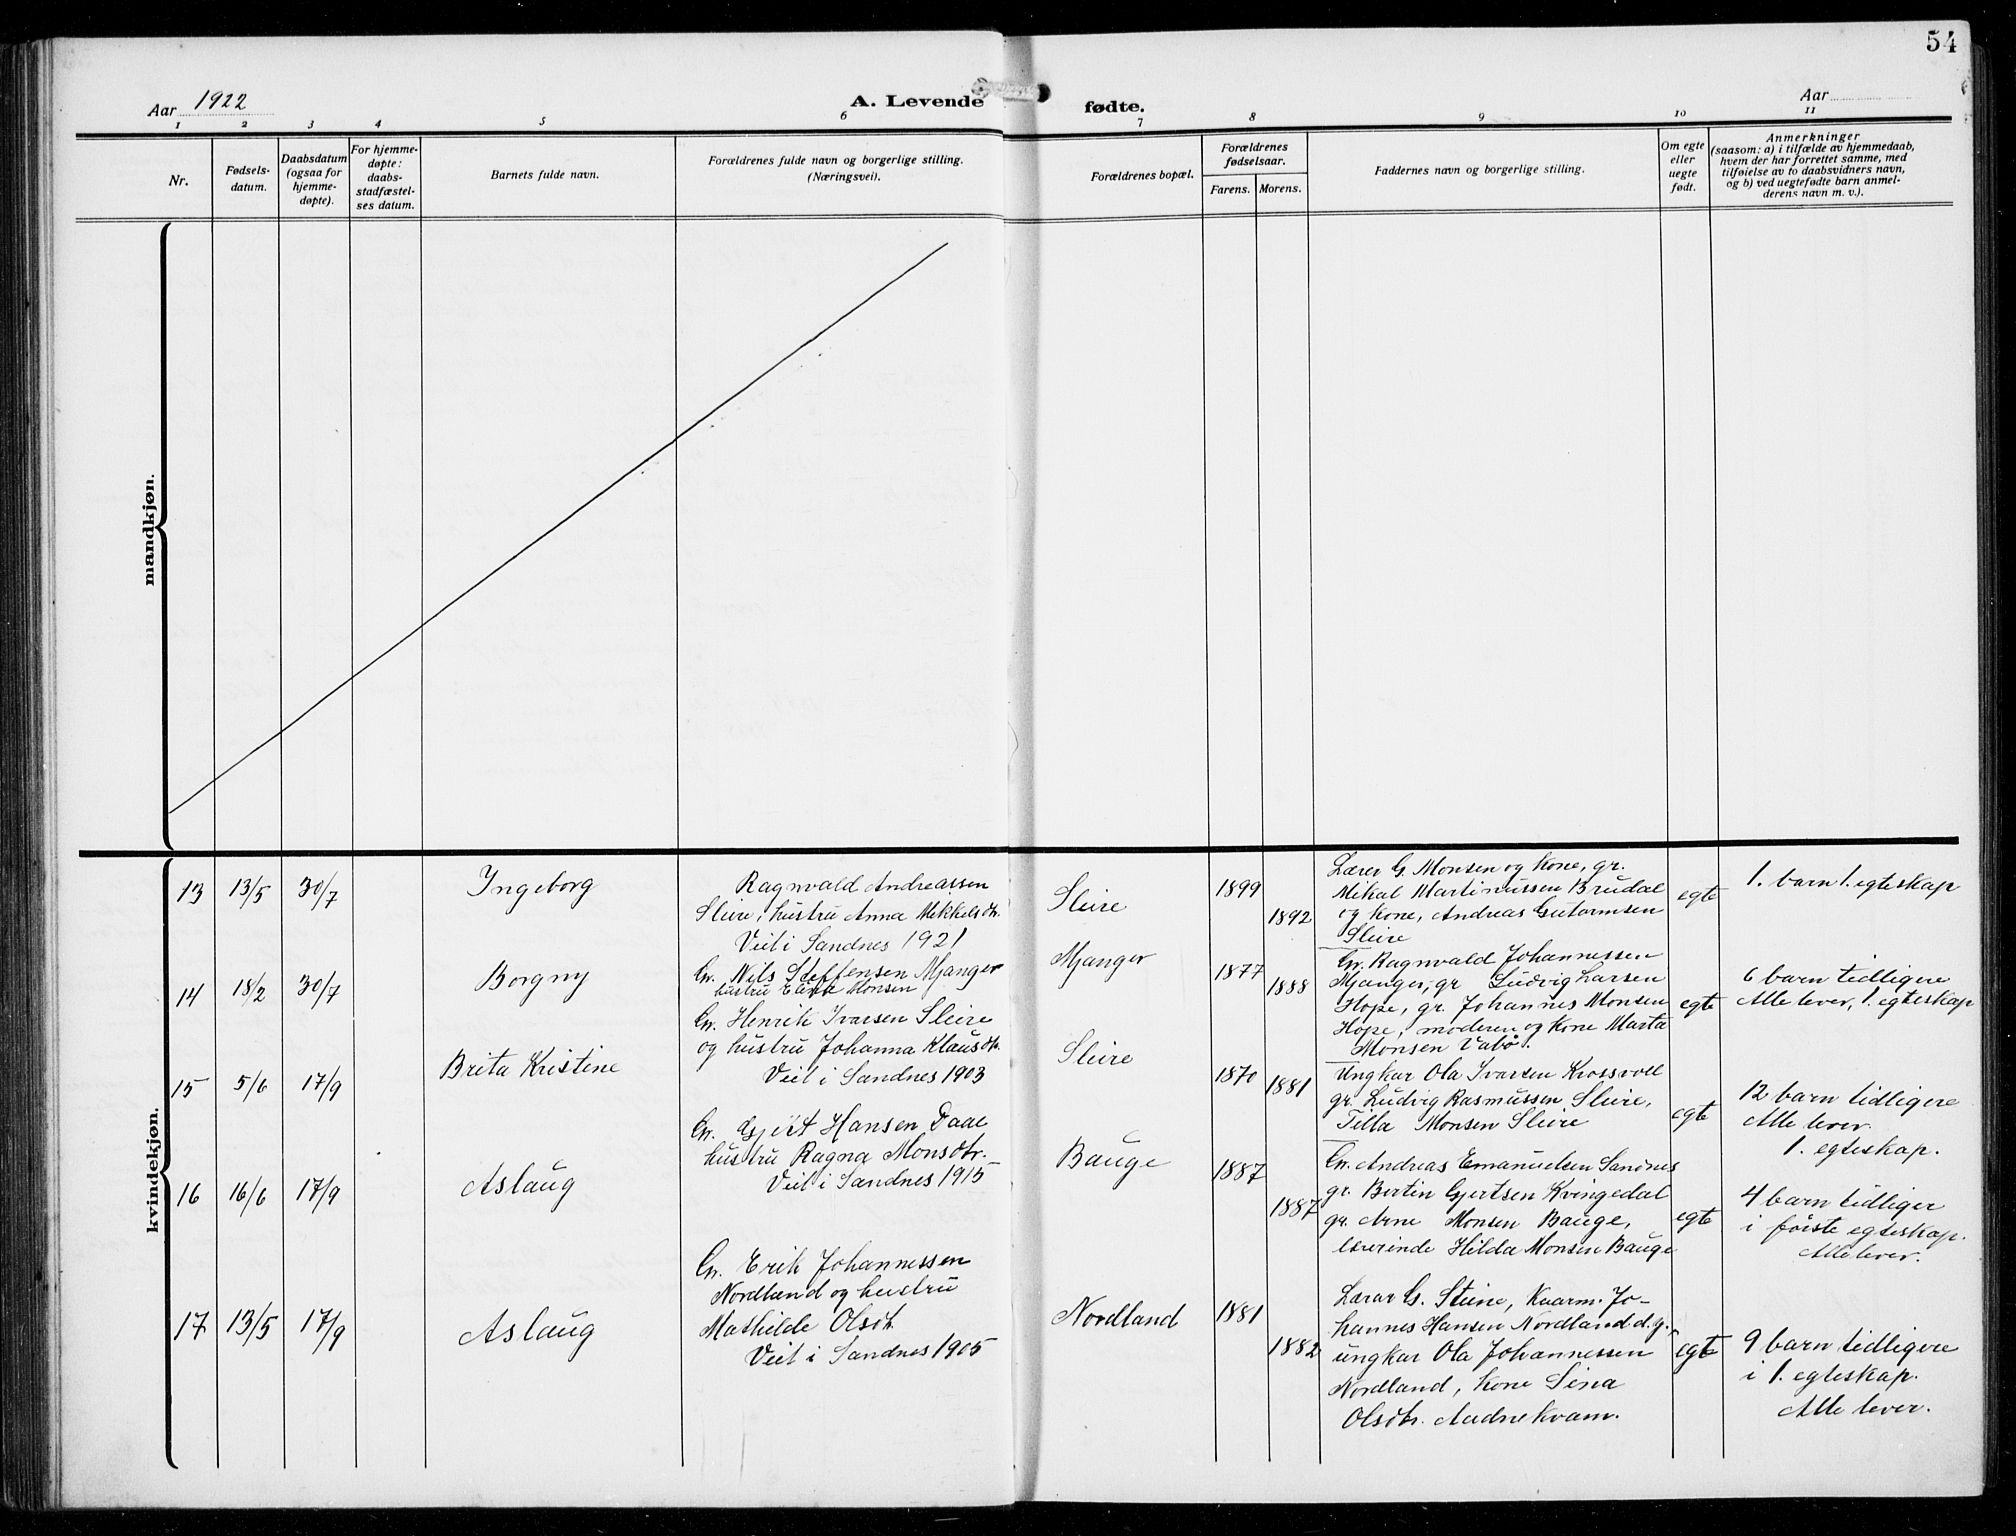 54
Aar 1922
A. Levende fødte.
Aar
1 2 3 4 5 6 7 8 9 10 11
Nr.
Fødsels-
datum.
Daabsdatum
(ogsaa for
hjemme-
døpte).
For hjemme-
døpte:
daabs-
stadfæstel-
ses datum.
Barnets fulde navn.
Forældrenes fulde navn og borgerlige stilling.
(Næringsvei).
Forældrenes bopæl.
Forældrenes
fødselsaar.
Farens. Morens.
Faddernes navn og borgerlige stilling.
Om egte
eller
uegte
født.
Anmerkninger
(saasom: a) i tilfælde av hjemmedaab,
hvem der har forrettet samme, med
tilføielse av to daabsvidners navn,
og b) ved uegtefødte barn anmel-
derens navn m. v.).
mandkjøn.
kvindekjøn.
13 13/5 30/7 Ingeborg
Ragnvald Andreassen
Sleire, hustru Anna Mikkelsdtr.
Viet i Sandnes 1921
Sleire
1899
1892
Lærer G. Monsen og kone, gr.
Mikal Martinussen Brudal
og kone, Andreas Gutormsen
Sleire
egte
1. barn 1. egteskap
14 18/2 30/7 Borgny
Gr. Nils Steffensen Mjanger
hustru Monsen
Mjanger
1877
1888
Gr. Ragnvald Johannessen
Mjanger, gr Ludvig Larsen
Hope, gr. Johannes Monsen
Hope, moderen og kone Marta
Monsen Vabø.
egte
6 barn tidligere
Alle lever, 1. egteskap
15 5/6 17/9 Brita Kristine
Gr. Henrik Ivarsen Sleire
og hustru Johanna Klausdtr.
Viet i Sandnes 1903
Sleire
1870
1881
Ungkar Ola Ivarsen Krossvoll
gr. Ludvig Rasmussen Sleire,
Tilla Monsen Sleire
egte
12 barn tidligere
Alle lever.
1. egteskap.
16 16/6 17/9 Aslaug
Gr. Gjert Hansen Daae
hustru Ragna Monsdtr.
Viet i Sandnes 1915
Bauge
1887
1887
Gr. Andreas Emanuelsen Sandnes
gr. Bertin Gjertsen Kvingedal
gr. Arne Monsen Bauge,
lærerinde Hilda Monsen Bauge
egte
4 barn tidliger
i første egteskap.
Alle lever.
17 13/5 17/9 Aslaug
Gr. Erik Johannessen
Nordland og hustru
Mathilde Olsdt.
Viet i Sandnes 1905
Nordland
1881
1882
Lærar G. Steine, Kaarm. Jo-
hannes Hansen Nordland d. y.,
ungkar Ola Johannessen
Nordland, kone Sina
Olsdtr. Audnekvam.
egte
9 barn tidligere
i 1. egteskap.
Alle lever.